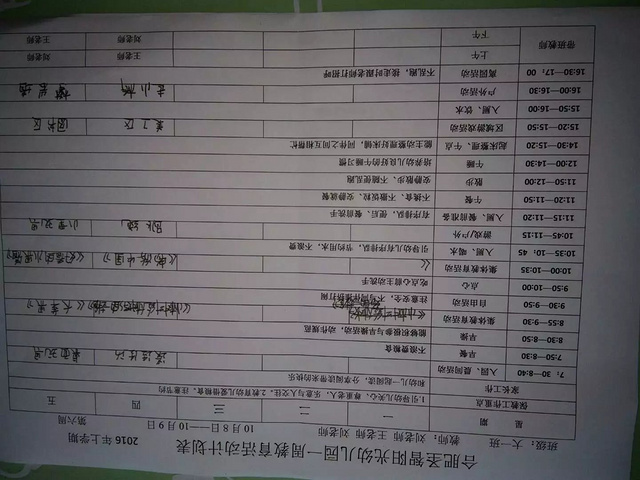 合肥圣智阳光幼儿园一周教育活动计划表
2016 年上学期
班级：大一班 教师：刘老师 王老师 刘老师 10 月 8 日——10 月 9 日 第六周
星 期 一 二 三 四 五
保教工作重点
家长工作 和幼儿一起阅读，分享阅读带来的快乐
7：30—8:40 入园、晨间活动
7:50—8:30 早餐 不浪费粮食
8:30—8:50 早操 能够积极参与早操活动，动作规范
8:55—9:30 集体教育活动
9:30—9:50 自由活动
9:50—10:00 点心 吃点心前主动洗手
10:00—10:35 集体教育活动
10:35—10：45 入厕、喝水 引导幼儿有序排队，节约用水，不浪费
10:45—11:15 游戏/户外
11:15—11:20 入厕、餐前准备 有序排队，便后、餐前洗手
11:20—11:50 午餐 不挑食、不撒饭，安静就餐
11:50—12:00 散步 安静散步、不随便乱跑
12:00—14:30 午睡 培养幼儿良好的午睡习惯
14:30—15:20 起床整理、午点 能主动整理好床铺，同伴之间互相帮忙
15:20—15:50 区域游戏活动 美工区 图书区
15:50—16:00 入厕、饮水
16:00—16:30 户外活动
16:30—17：00 离园活动 不乱跑，接走时跟老师打招呼
带班教师 上午 刘老师 王老师
下午 刘老师 王老师